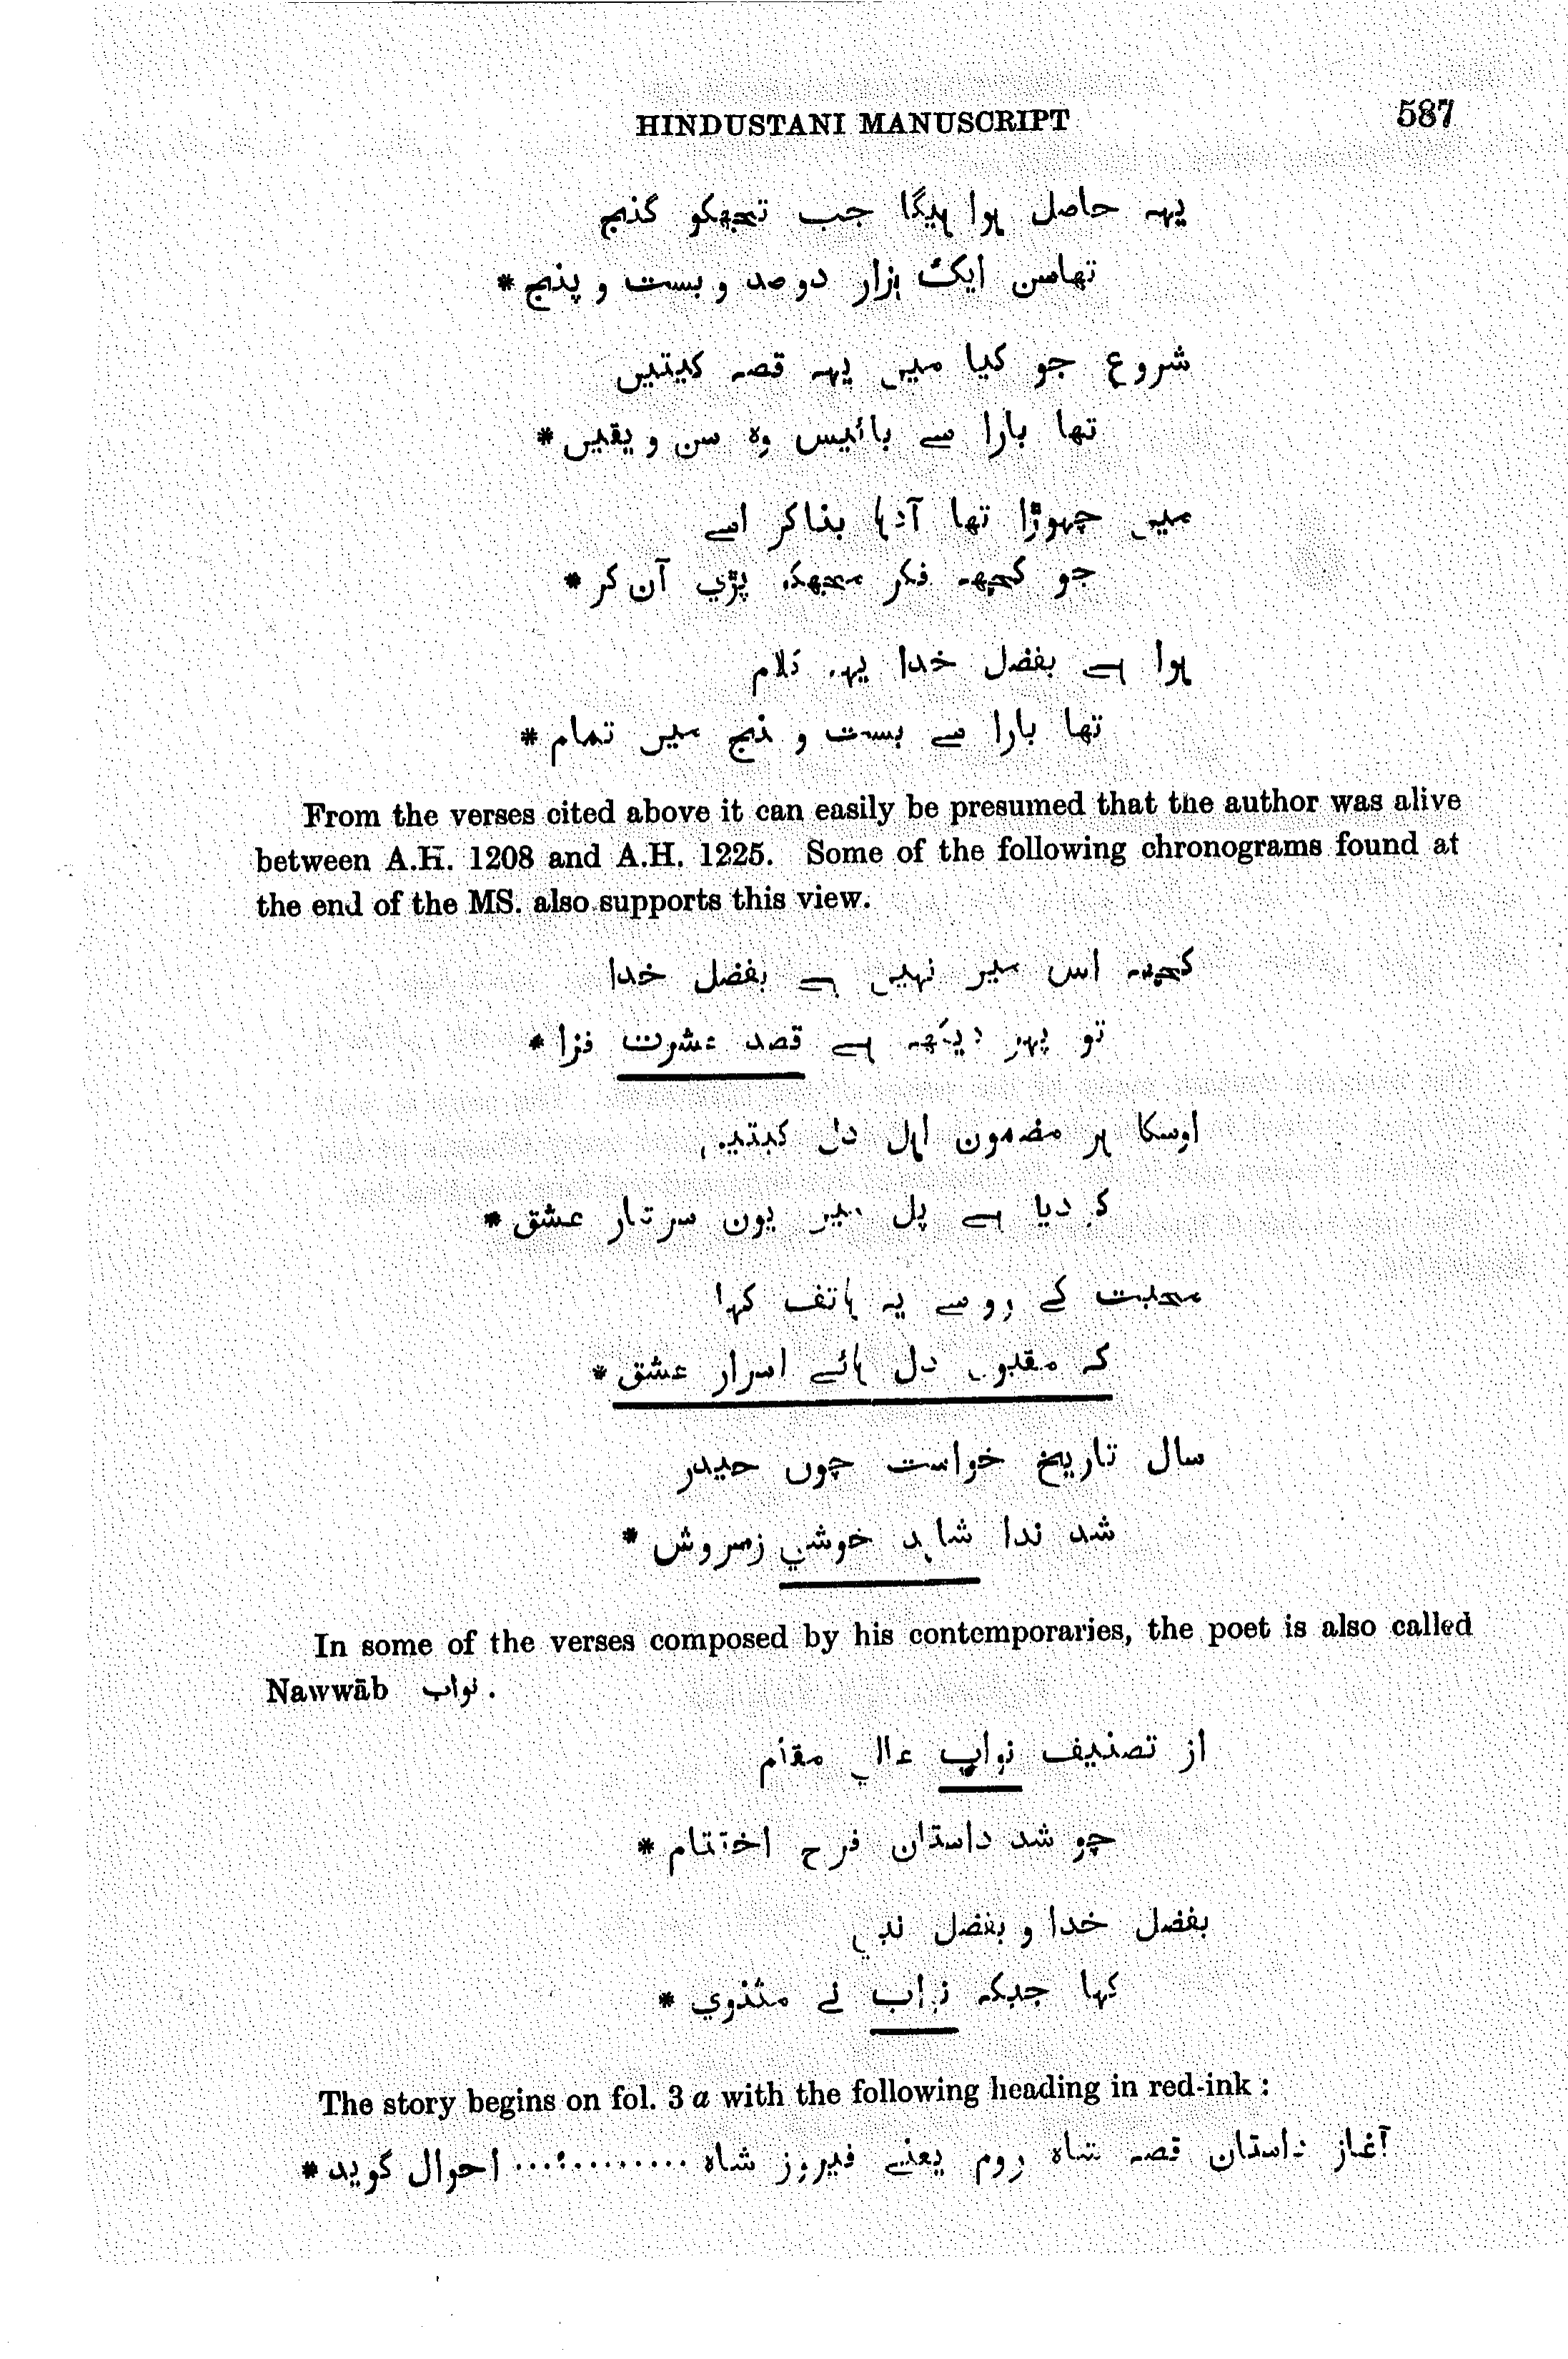 HINDUSTANI MANUSCRIPT 587
یہہ حاصل ہوا ہیگا جب تجھکو گنج
تھاسن ایک ہزار دوصد و بست و پنج *
شروع جو کیا میں یہہ قصہ کیتیں
تھا بارا سے بائیس وہ سن و یقیں *
میں چہوڑا تھا آدہا بناکر اسے
جو کچھہ فکر مجھکو پڑي آن کر *
ہوا ہے بفضل خدا یہہ کلام
تھا بارا سے بست و پنج میں تمام *
From the verses cited above it can easily be presumed that the author was alive
between A.H. 1208 and A.H. 1225. Some of the following chronograms found at
the end of the MS. also supports this view.
کچھہ اس میں نہیں ہے بفضل خدا
تو پھر دیکھہ ہے قصد عشرت فزا *
اوسکا ہر مضمون اہل دل کیتیں
کر دیا ہے پل میں یون سرشار عشق *
محبت کے روسے یہ ہاتف کہا
کہ مقبول دل ہائے اسرار عشق *
سال تاریخ خواست چوں حیدر
شد ندا شاہد خوشي زسروش *
In some of the verses composed by his contemporaries, the poet is also called
Nawwāb نواب .
از تصنیف نواب عالي مقام
چو شد داستان فرح اختتام *
بفضل خدا و بفضل نبي
کہا جبکہ نواب نے مثنوي *
The story begins on fol. 3 a with the following heading in red-ink :
آغاز داستان قصہ شاہ روم یعنے فیروز شاہ ............ احوال گوید *